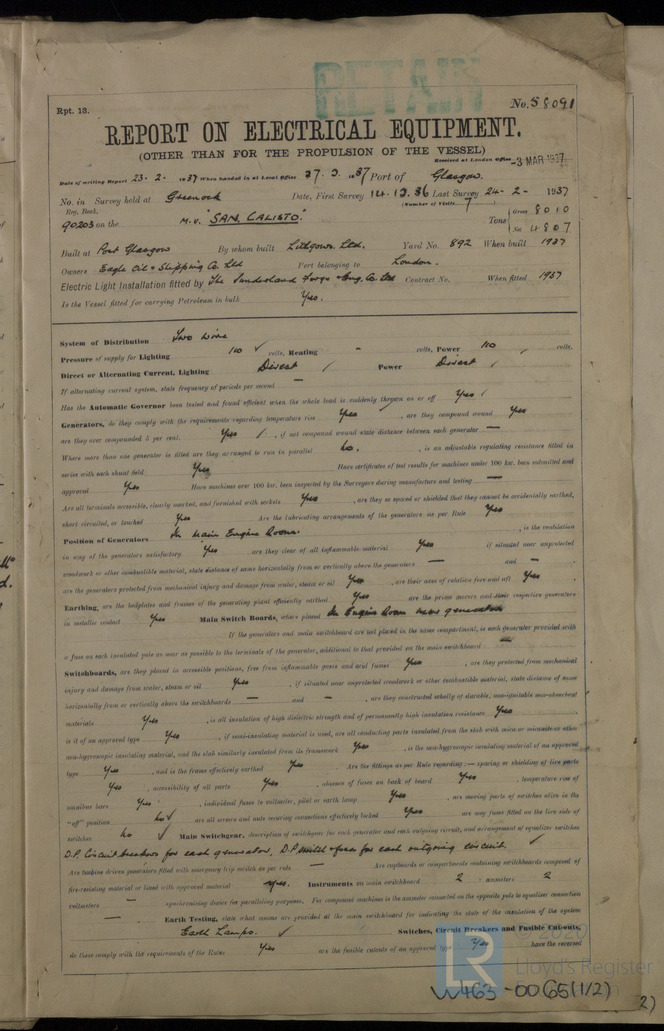 RETAIN
Rpt. 13.
No. 58091
REPORT ON ELECTRICAL EQUIPMENT.
(OTHER THAN FOR THE PROPULSION OF THE VESSEL)
Received at London Office -3 MAR 1937
Date of writing Report 23-2-1937 When handed in at Local Office 27.2.1937 Port of Glasgow.
No. in Survey held at Greenock Date, First Survey 14.12.36 Last Survey 24-2-1937
Reg. Book. (Number of Visits 7)
90203 on the M.V. "SAN CALISTO" Tons Gross 8010 Net 4807
Built at Port Glasgow By whom built Lithgows Ltd. Yard No. 892 When built 1937
Owners Eagle Oil & Shipping Co. Ltd Port belonging to London.
Electric Light Installation fitted by The Sunderland Forge & Eng. Co. Ltd Contract No. When fitted 1937
Is the Vessel fitted for carrying Petroleum in bulk Yes.
System of Distribution Two Wire
Pressure of supply for Lighting 110 ✓ volts, Heating - volts, Power 110 ✓ volts.
Direct or Alternating Current, Lighting Direct ✓ Power Direct ✓
If alternating current system, state frequency of periods per second —
Has the Automatic Governor been tested and found efficient when the whole load is suddenly thrown on or off Yes ✓
Generators, do they comply with the requirements regarding temperature rise Yes , are they compound wound Yes
are they over compounded 5 per cent. Yes ✓ , if not compound wound state distance between each generator —
Where more than one generator is fitted are they arranged to run in parallel No. , is an adjustable regulating resistance fitted in
series with each shunt field Yes Have certificates of test results for machines under 100 kw. been submitted and
approved Yes Have machines over 100 kw. been inspected by the Surveyors during manufacture and testing —
Are all terminals accessible, clearly marked, and furnished with sockets Yes , are they so spaced or shielded that they cannot be accidentally earthed,
short circuited, or touched Yes Are the lubricating arrangements of the generators as per Rule Yes
Position of Generators In Main Engine Room , is the ventilation
in way of the generators satisfactory Yes are they clear of all inflammable material Yes if situated near unprotected
woodwork or other combustible material, state distance of same horizontally from or vertically above the generators — and —
are the generators protected from mechanical injury and damage from water, steam or oil Yes , are their axes of rotation fore and aft Yes
Earthing, are the bedplates and frames of the generating plant efficiently earthed Yes are the prime movers and their respective generators
in metallic contact Yes Main Switch Boards, where placed In Engine Room near generators
If the generators and main switchboard are not placed in the same compartment, is each generator provided with
a fuse on each insulated pole as near as possible to the terminals of the generator, additional to that provided on the main switchboard —
Switchboards, are they placed in accessible positions, free from inflammable gases and acid fumes Yes , are they protected from mechanical
injury and damage from water, steam or oil Yes , if situated near unprotected woodwork or other combustible material, state distance of same
horizontally from or vertically above the switchboards — and — , are they constructed wholly of durable, non-ignitable non-absorbent
materials Yes , is all insulation of high dielectric strength and of permanently high insulation resistance Yes
is it of an approved type Yes , if semi-insulating material is used, are all conducting parts insulated from the slab with mica or micanite or other
non-hygroscopic insulating material, and the slab similarly insulated from its framework Yes , is the non-hygroscopic insulating material of an approved
type Yes , and is the frame effectively earthed Yes Are the fittings as per Rule regarding:— spacing or shielding of live parts
Yes , accessibility of all parts Yes , absence of fuses on back of board Yes , temperature rise of
omnibus bars Yes , individual fuses to voltmeter, pilot or earth lamp Yes , are moving parts of switches alive in the
"off" position No ✓ are all screws and nuts securing connections effectively locked Yes are any fuses fitted on the live side of
switches No ✓ Main Switchgear, description of switchgear for each generator and each outgoing circuit, and arrangement of equaliser switches
D.P. Circuit breakers for each generator, D.P. switch & fuse for each outgoing circuit. ✓
Are turbine driven generators fitted with emergency trip switch as per rule — Are cupboards or compartments containing switchboards composed of
fire-resisting material or lined with approved material Yes. Instruments on main switchboard 2 ammeters 2
voltmeters — synchronising device for paralleling purposes. For compound machines is the ammeter connected on the opposite pole to equaliser connection
— Earth Testing, state what means are provided at the main switchboard for indicating the state of the insulation of the system
Earth Lamps. ✓ Switches, Circuit Breakers and Fusible Cut-outs,
do these comply with the requirements of the Rules Yes are the fusible cutouts of an approved type Yes have the reversed
LR
© 2020
Lloyd's Register
W463-0065(1/2)
2)